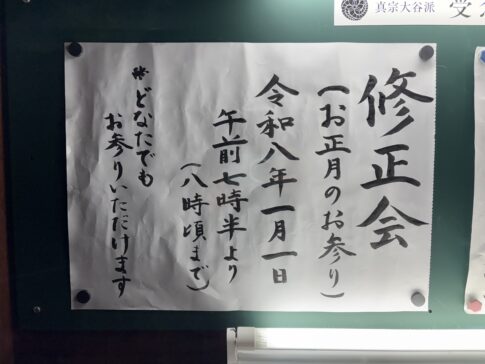 真宗大谷派
修正会
（お正月のお参り）
令和八年一月一日
午前七時半より
（八時頃まで）
※どなたでも
お参りいただけます